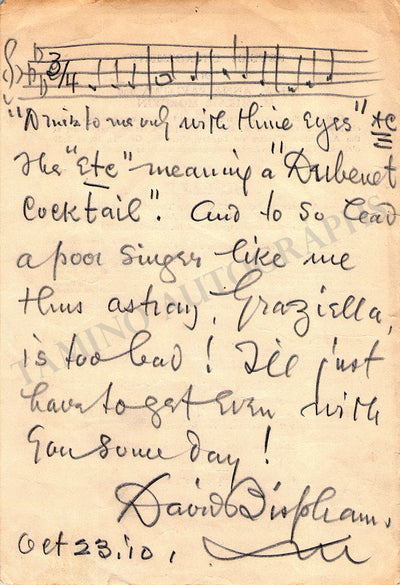 3/4
"Drink to me only with thine Eyes" etc
The "Etc" meaning a "Dubenet
Cocktail". And to so lead
a poor singer like me
thus astray, Graziella,
is too bad! I'll just
have to get Even with
you some day!
David Bispham.
Oct 23.10.
TAMINO AUTOGRAPHS